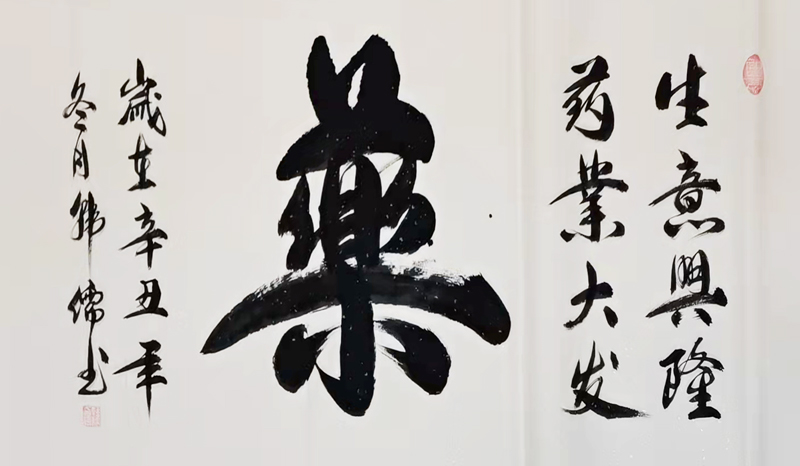 生意興隆
药業大发
藥
歲在辛丑年
冬月韩儒书